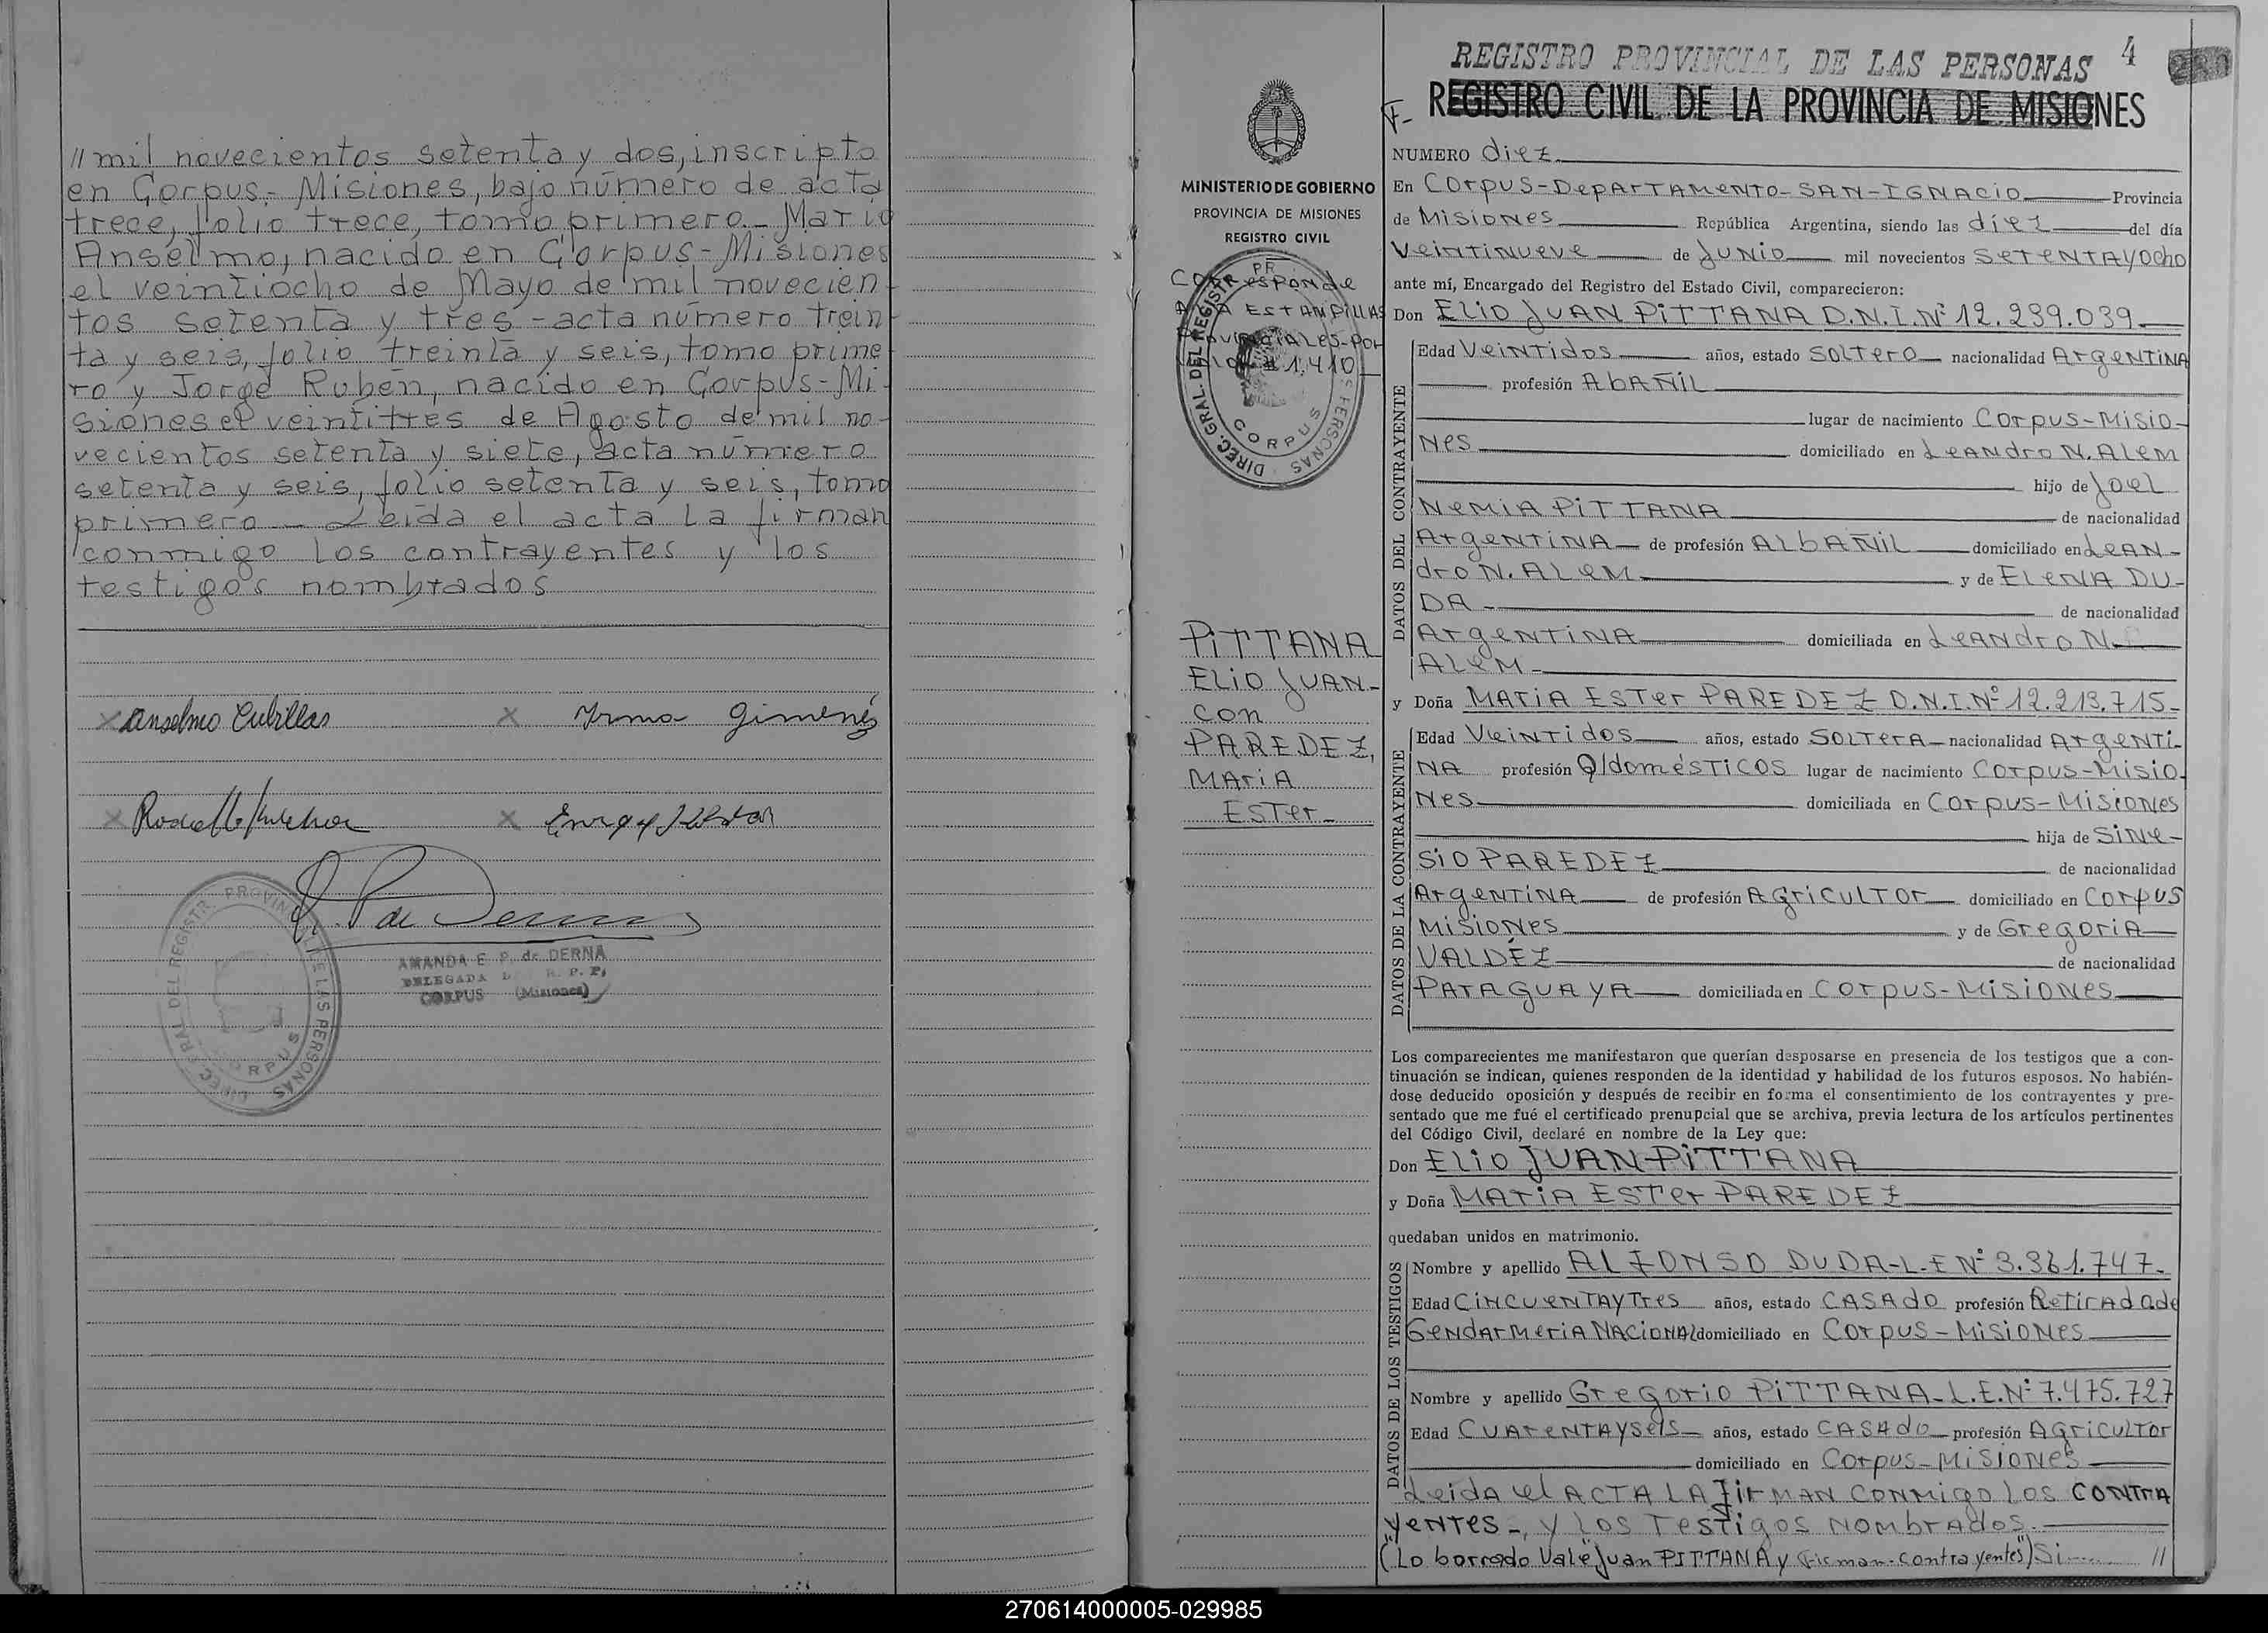 // mil novecientos setenta y dos, inscripto
en Corpus-Misiones, bajo número de acta
trece, folio trece, tomo primero_ Mario
Anselmo, nacido en Corpus-Misiones
el veintiocho de Mayo de mil novecien
tos setenta y tres - acta número trein
ta y seis, folio treinta y seis, tomo prime
ro y Jorge Rubén, nacido en Corpus-Mi-
siones el veintitres de Agosto de mil no-
vecientos setenta y siete, acta número
setenta y seis, folio setenta y seis, tomo
primero_ Leida el acta la firman
conmigo los contrayentes y los
testigos nombrados
x Anselmo Cubillas x Irma Gimenés
x x
P. de Derna
AMANDA E. P. de DERNA
DELEGADA R. P. P.
CORPUS (Misiones)
DIREC. GRAL DEL REGISTR. PROVINCIAL DE LAS PERSONAS
CORPUS
MINISTERIO DE GOBIERNO
PROVINCIA DE MISIONES
REGISTRO CIVIL
Corresponde
A ESTAMPILLAS
PROVINCIALES-POR
1.410
DIREC. GRAL. DEL REGISTR. PERSONAS
CORPUS
PITTANA
ELIO JUAN-
CON
PAREDEZ,
MARIA
ESTER-
REGISTRO PROVINCIAL DE LAS PERSONAS 4
F- REGISTRO CIVIL DE LA PROVINCIA DE MISIONES
NUMERO diez
En Corpus-Departamento-SAN-IGNACIO Provincia
de Misiones República Argentina, siendo las diez del día
Veintinueve de Junio mil novecientos SETENTAYOcho
ante mí, Encargado del Registro del Estado Civil, comparecieron:
Don ELIO JUAN PITTANA D.N.I.Nº 12.239.039
DATOS DEL CONTRAYENTE
Edad Veintidos años, estado SOLTERO nacionalidad ArgENTINA
profesión AbAÑIL
lugar de nacimiento Corpus-Misio-
Nes domiciliado en LeANdro N. Alem
hijo de Joel
NemiA PITTANA de nacionalidad
ArgENTINA de profesión ALbAÑIL domiciliado en LeAN-
dro N. ALeM y de ELeNA DU-
DA- de nacionalidad
ArgENTINA domiciliada en LeANdro N.
ALeM-
y Doña MARIA ESTer PAREDEZ D.N.I.Nº 12.213.715-
DATOS DE LA CONTRAYENTE
Edad VeiNTidos años, estado SOLTerA nacionalidad ArgeNTi-
NA profesión Q/domésTicos lugar de nacimiento Corpus-Misio-
Nes domiciliada en Corpus-Misiones
hija de SiNe-
sio PAREDEZ de nacionalidad
ArgeNTiNA de profesión AgriculTor domiciliado en Corpus
Misiones y de GregoriA
VALDÉZ de nacionalidad
PArAguAyA domiciliada en Corpus-Misiones
Los comparecientes me manifestaron que querían desposarse en presencia de los testigos que a con-
tinuación se indican, quienes responden de la identidad y habilidad de los futuros esposos. No habién-
dose deducido oposición y después de recibir en forma el consentimiento de los contrayentes y pre-
sentado que me fué el certificado prenupcial que se archiva, previa lectura de los artículos pertinentes
del Código Civil, declaré en nombre de la Ley que:
Don ELIO JUAN PITTANA
y Doña MARIA ESTer PAREDEZ
quedaban unidos en matrimonio.
DATOS DE LOS TESTIGOS
Nombre y apellido ALFONSO DUDA-L-E Nº 3.361.747-
Edad CiNcueNTAyTres años, estado CASAdO profesión Retirado de
GeNdArmeriA NAcionAl domiciliado en Corpus-Misiones
Nombre y apellido Gregorio PITTANA-L.E.Nº 7.475.727
Edad CuAreNTAyseis años, estado CASAdO profesión AgriculTor
domiciliado en Corpus-Misiones
Leida el ACTA LA firmAN conmigo los CONTrA
yeNTes-, y los Testigos nombrAdos.
(Lo borrado Vale "Juan PITTANA y firman-contrayentes") Si //
270614000005-029985